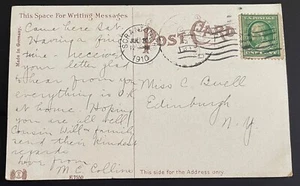 This Space For Writing Messages
POST CARD
Made in Germany.
1910
Came here Sat.
Having fine
time - received
your letter glad
to hear from you
everything is ok
at home. Hoping
you are all well
Cousin Will & family
send their kindest
regards
M. E. Collins
Miss C. Buell
Edinburgh
N-Y
This side for the Address only.